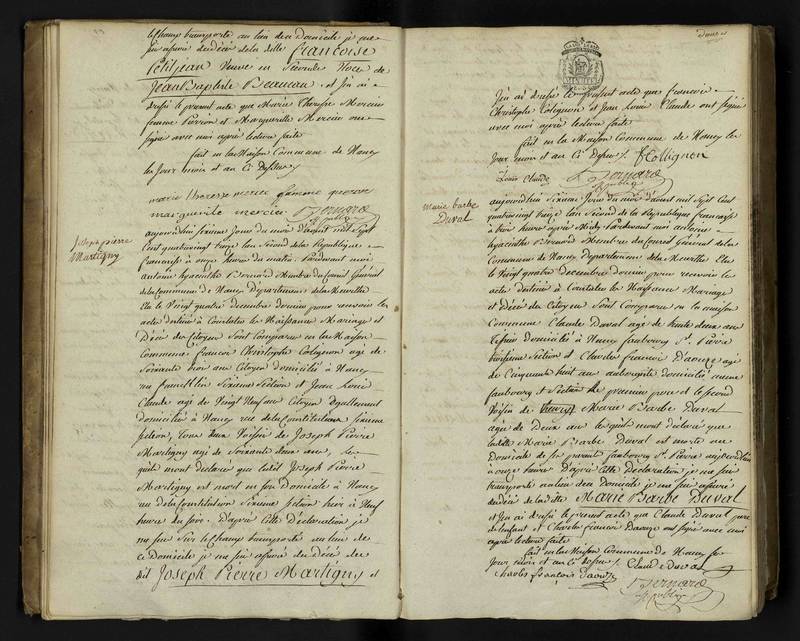 le champ transporté au lieu de ce domicile je me
suis assuré du décès de la ditte françoise
Petitjean Veuve en Seconde Noce de
Jean Baptiste Beaucau et j'en ai
dressé le présent acte que Marie Therese Mercier
femme Pierron et Marguerite Mercier ont
signé avec moi après lecture faite
fait en la Maison Commune de Nancy
les Jour mois et an Ci Dessus
marie theresse mercier famme
marguerite mercier Bernard
off. public
Joseph pierre
Martigny
aujourd'hui sixieme Jour du mois d'aoust mil Sept
Cent quatrevingt treize l'an Second de la République
françaisse à onze heure du matin. Pardevant moi
antoine hyacinthe Bernard Membre du Conseil Général
de la Commune de Nancy Département de la Meurthe
Elu le Vingt quatre decembre dernier pour recevoir les
acte destinés à Constater les Naissance Mariage et
Décès des Citoyens Sont Comparus en la Maison
Commune françois Christophe Colignon agé de
Soixante trois ans Citoyen domicilié à Nancy
rue franklin Sixieme Section et Jean Louis
Claude agé de Vingt Neuf ans Citoyen Egallement
domicilié à Nancy rue de la Constitution sixieme
Section, tous deux Voisin de Joseph Pierre
Martigny agé de Soixante deux ans, les
quels mont declaré que ledit Joseph Pierre
Martigny est mort en son Domicile à Nancy
rue de la Constitution Sixieme Section hier à Neuf
heure du soir. D'après Cette Déclaration je
me suis Sur le champ transporté au lieu de
ce Domicile je me suis assuré du Décès du
dit Joseph Pierre Martigny et
J'en ai dressé le présent acte que francois
Christophe Colignon et Jean Louis Claude ont signé
avec moi après lecture faite
fait en la Maison Commune de Nancy les
Jour mois et an Ci Dessus Collignon
Louis Claude Bernard
off. public
Marie barbe
Duval
aujourd'hui Sixieme Jour du mois d'aoust mil Sept Cent
quatrevingt treize l'an Second de la République françaisse
à trois heure après Midy Pardevant moi antoine
hyacinthe Bernard Membre du Conseil Général de la
Commune de Nancy Département de la Meurthe Elu
le Vingt quatre decembre dernier pour recevoir les
acte destinés à Constater les Naissance Mariage
et Décès des Citoyens Sont Comparus en la maison
Commune Claude Duval agé de trente deux ans
Domicilié à Nancy faubourg St. Pierre
Section et Charles francois Daouze agé
de Cinquante huit ans domicilié même
faubourg et Section le premier pere et le Second
Voisin de Marie Barbe Duval
agée de Deux ans lesquels mont déclaré que
laditte Marie Barbe Duval est morte au
Domicile de ses parents faubourg St. Pierre aujourd'hui
à onze heure D'après Cette Déclaration je me suis
transporté au lieu de ce domicile je me suis assuré
du décès de la ditte Marie Barbe Duval
et j'en ai dressé le présent acte que Claude Duval pere
de l'enfant et Charles francois Daouze ont signé avec moi
après lecture faite
fait en la Maison Commune de Nancy les
Jour mois et an Ci dessus Claude Duval
Charles françois Daouze
Bernard
off. public